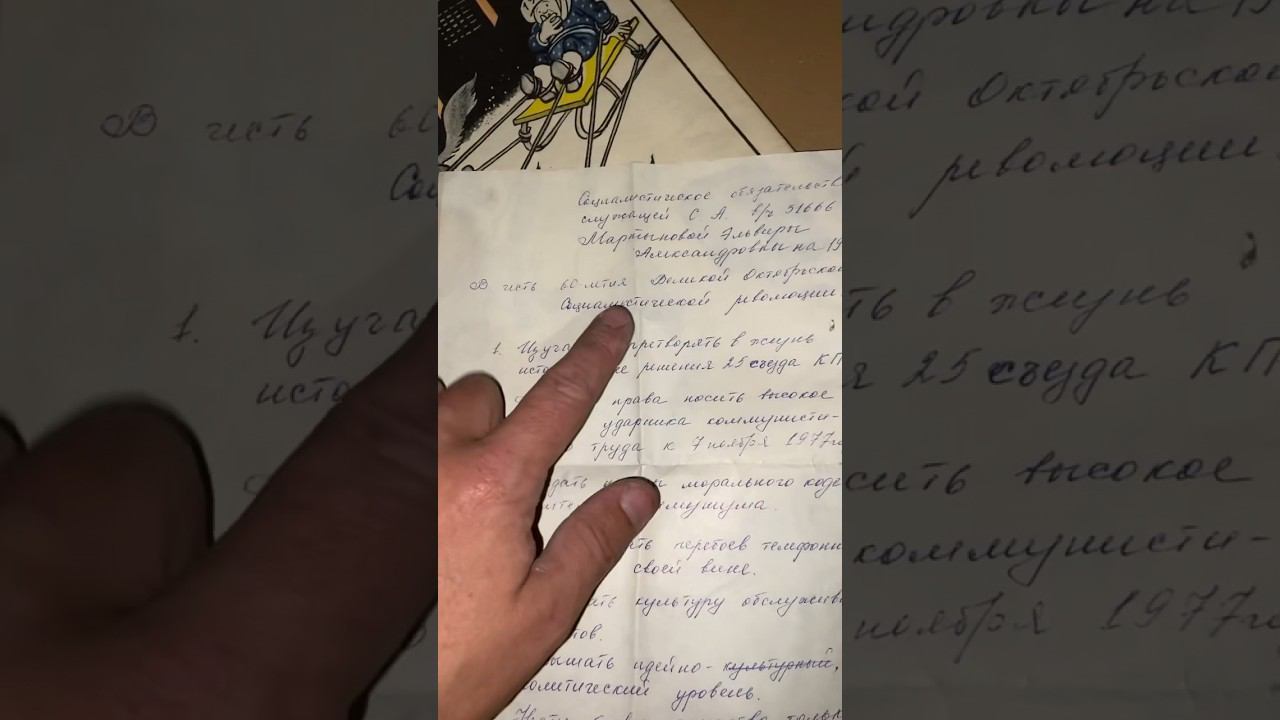 Социалистическое обязательств
служащей С А. в/ч 51666
Мартыновой Эльвиры
Александровны на 19
В честь 60-летия Великой Октябрьской
Социалистической революции.
1. Изуча претворять в жизнь
исто е решения 25 съезда КП
права носить высокое
ударника коммунисти-
труда к 7 ноября 1977го
морального коде
мунизма.
ть перебоев телефонн
своей вине.
ить культуру обслужива
тов.
ышать идейно- культурный,
олитический уровень.
только